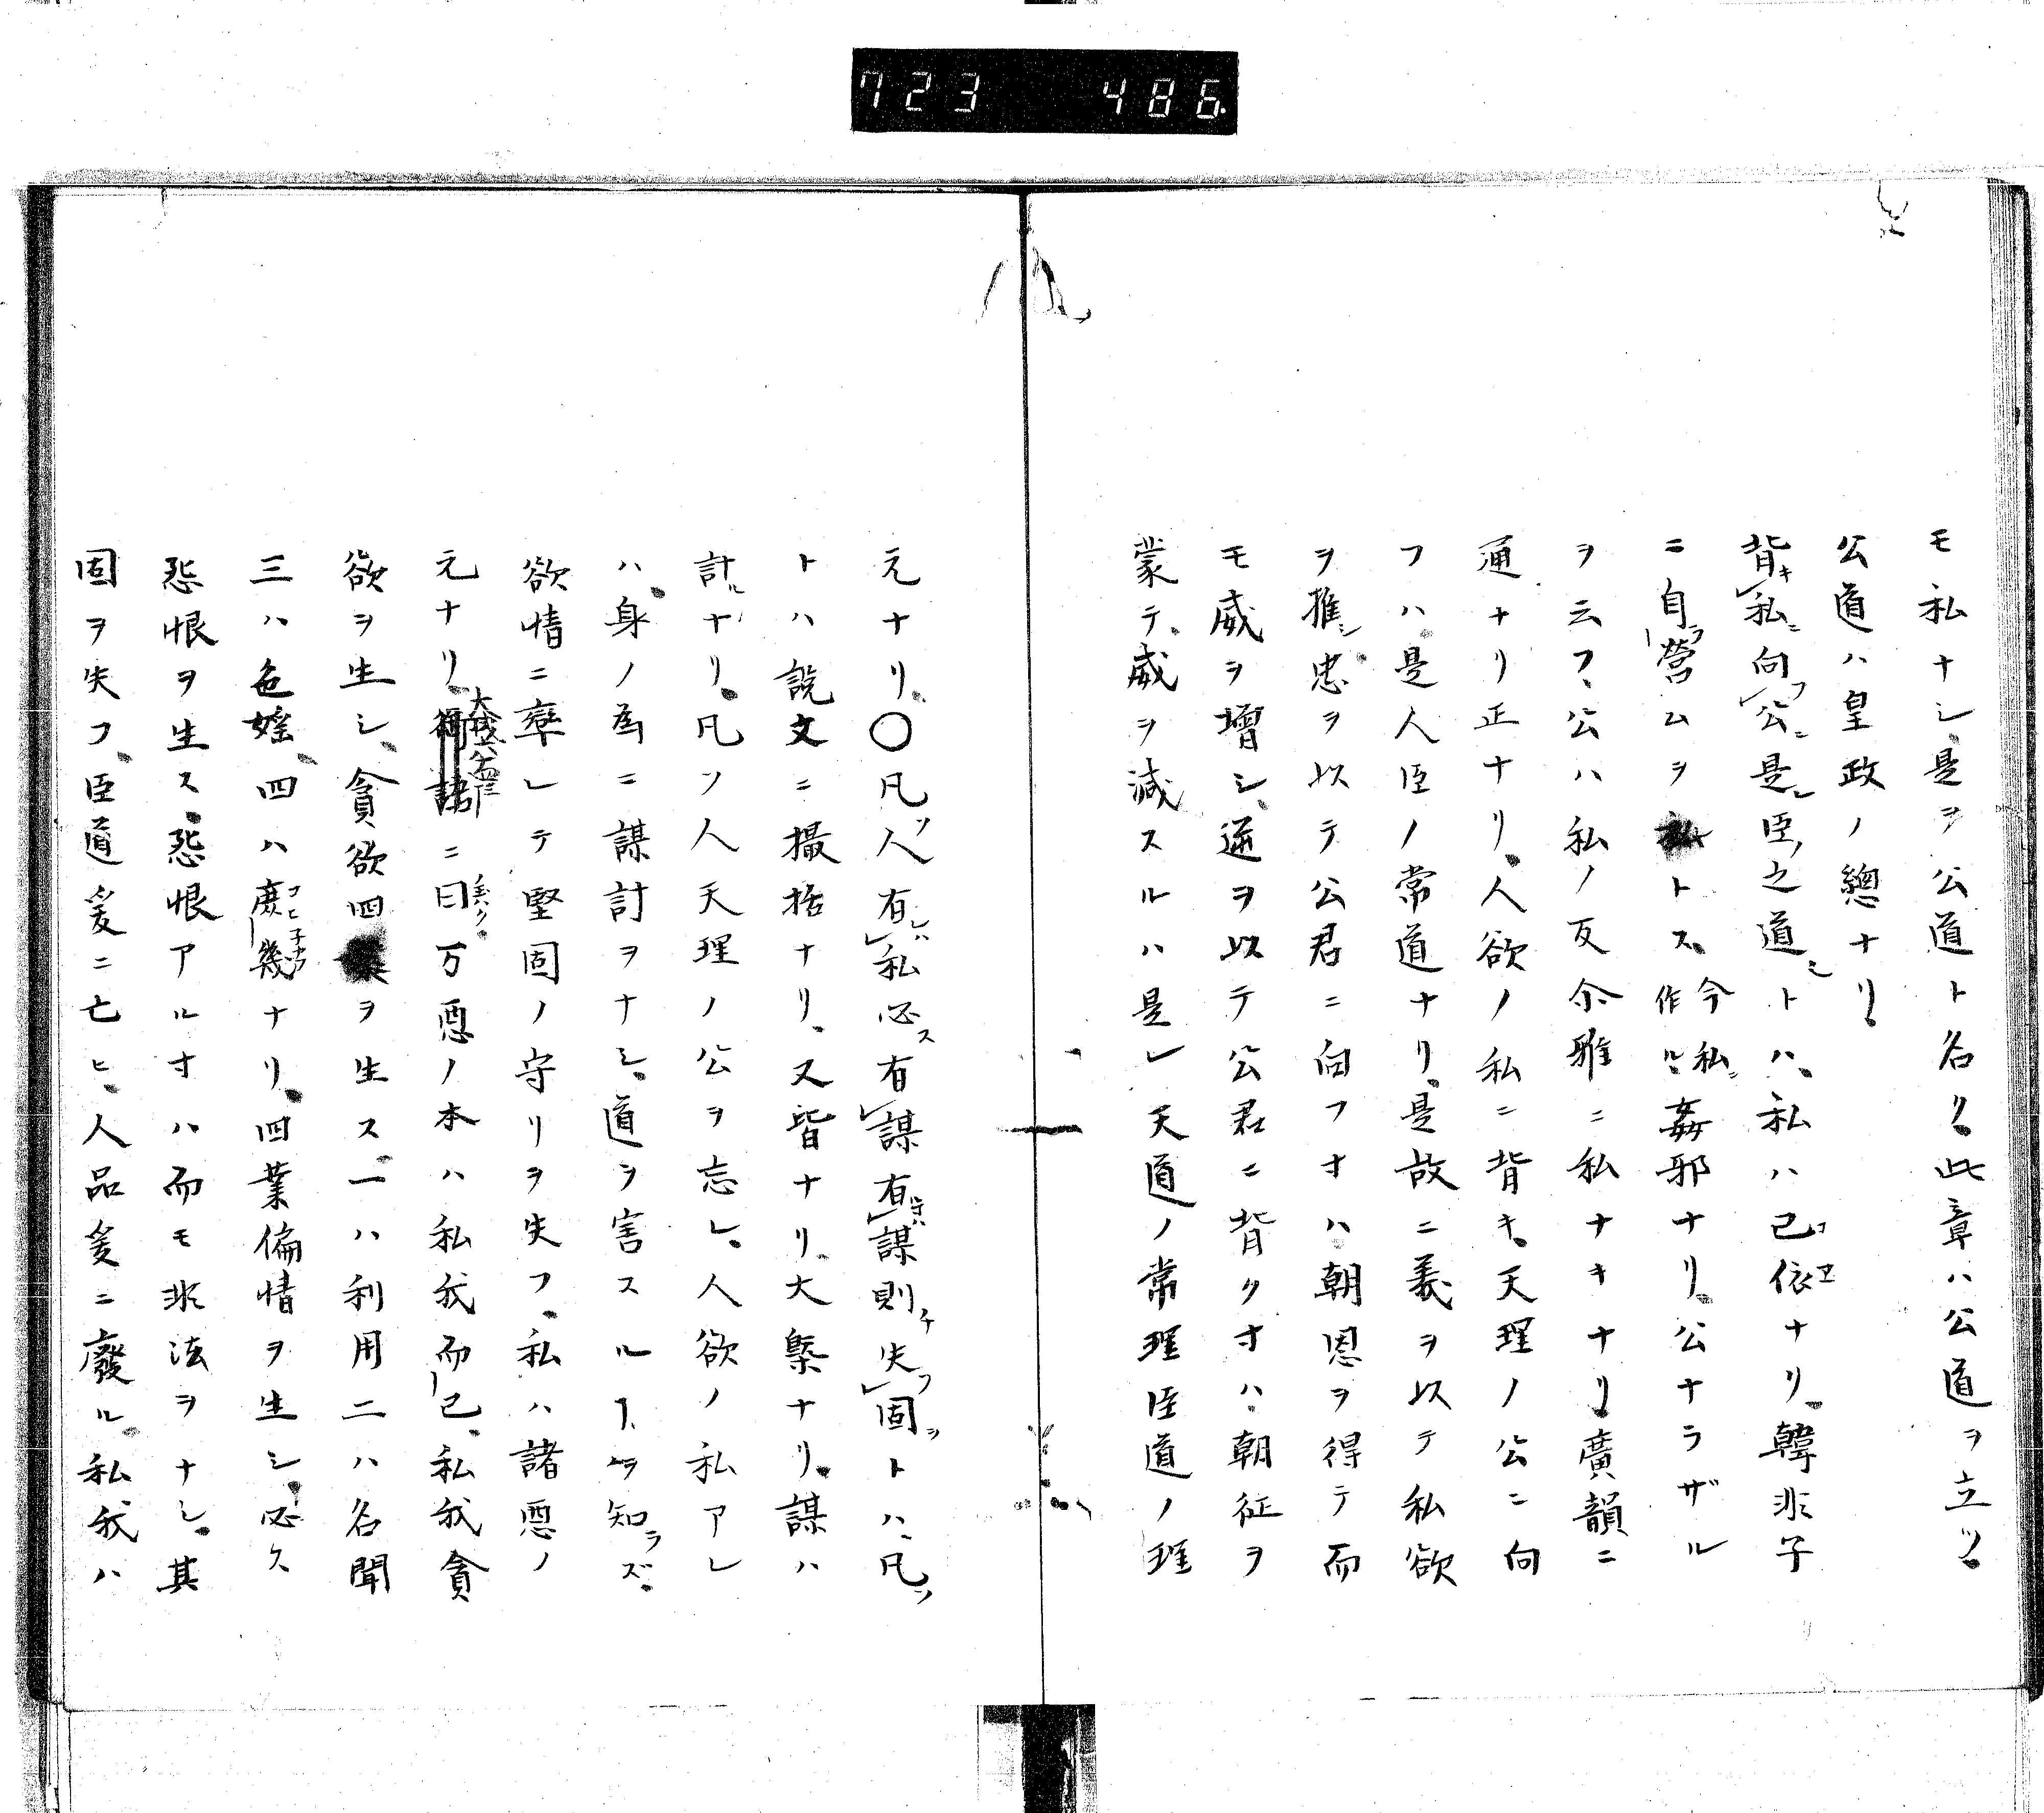 723 486
モ私ナシ、是ヲ公道ト名ク、此章ハ公道ヲ立ツ、
公道ハ皇政ノ總ナリ、
背キ私ニ向フ公ニ是レ臣ノ之道ミトハ、私ハ己依ナリ、韓非子
ニ自ラ營ムヲ私トス、今私ニ作ル、姦邪ナリ、公ナラザル
ヲ云フ、公ハ私ノ反尒雅ニ私ナキナリ廣韻ニ
通ナリ正ナリ、人欲ノ私ニ背キ、天理ノ公ニ向
フハ、是人臣ノ常道ナリ、是故ニ義ヲ以テ私欲
ヲ推シ、忠ヲ以テ公君ニ向フオハ、朝恩ヲ得テ而
モ威ヲ增シ、逆ヲ以テ公君ニ背クオハ、朝征ヲ
蒙テ、威ヲ減スルハ是レ天道ノ常理臣道ノ理
元ナリ、〇凡ソ人有レハ私必ス有謀有ルオハ謀則チ失フ固ヲトハ、凡ソ
トハ說文ニ撮括ナリ、又皆ナリ、大槩ナリ、謀ハ
計ルナリ、凡ソ人天理ノ公ヲ忘レ、人欲ノ私アレ
ハ、身ノ為ニ謀計ヲナシ、道ヲ害スルヿヲ知ラズ、
欲情ニ牽レテ堅固ノ守リヲ失フ、私ハ諸悪ノ
元ナリ、ニ曰ク万悪ノ本ハ私我而已、私我貪
欲ヲ生シ、貪欲四業ヲ生ス、一ハ利用二ハ名聞
三ハ色婬、四ハ庶幾ナリ、四業偏情ヲ生シ、必ス
怨恨ヲ生ス、怨恨アルオハ而モ非法ヲナシ、其
固ヲ失フ、臣道爰ニ亡ヒ、人品爰ニ廢ル、私我ハ